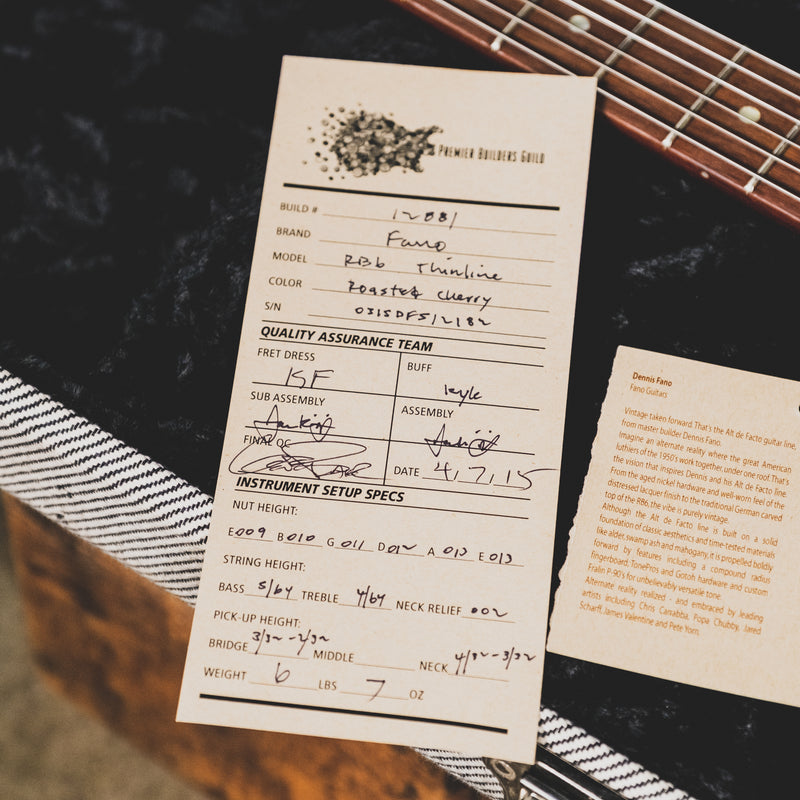 PREMIER BUILDERS GUILD
BUILD # 12881
BRAND Fano
MODEL RB6 Thinline
COLOR Roasted Cherry
S/N
QUALITY ASSURANCE TEAM
FRET DRESS BUFF
KF Kyle
SUB ASSEMBLY ASSEMBLY
FINAL QC DATE 4, 7, 15
INSTRUMENT SETUP SPECS
NUT HEIGHT:
E 009 B 010 G 011 D 012 A 013 E 013
STRING HEIGHT:
BASS 5/64 TREBLE 4/64 NECK RELIEF .002
PICK-UP HEIGHT:
BRIDGE 3/32-2/32 MIDDLE NECK 4/32-3/32
WEIGHT 6 LBS 7 OZ
Dennis Fano
Fano Guitars
Vintage taken forward. That's the Alt de Facto guitar line,
from master builder Dennis Fano.
Imagine an alternate reality where the great American
luthiers of the 1950's work together, under one roof. That's
the vision that inspires Dennis and his Alt de Facto line.
From the aged nickel hardware and well-worn feel of the
distressed lacquer finish to the traditional German carved
top of the RB6, the vibe is purely vintage.
Although the Alt de Facto line is built on a solid
foundation of classic aesthetics and time-tested materials
like alder, swamp ash and mahogany, it is propelled boldly
forward by features including a compound radius
fingerboard, TonePros and Gotoh hardware and custom
Fralin P-90's for unbelievably versatile tone.
Alternate reality realized - and embraced by leading
artists including Chris Carrabba, Popa Chubby, Jared
Scharff, James Valentine and Pete Yorn.